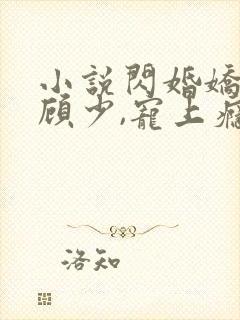 小說閃婚嬌
顾少,寵上癮
洛知